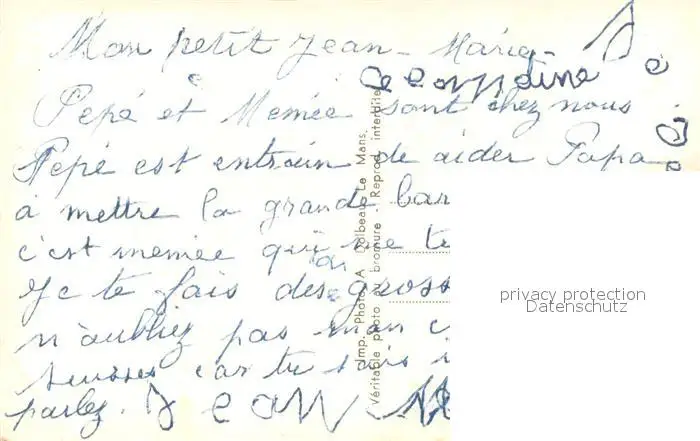 Mon petit Jean-Marie-
Pépé et Memée sont chez nous
Pépé est entrain de aider Papa
à mettre la grande bar
c'est memée qui me te
Je te fais des gross
n'aubliez pas mon c
car tu sais
parlez. JeaN
Imp. Photo A. Dolbeau, Le Mans.
Véritable photo au bromure - Reprod. interdite
privacy protection
Datenschutz